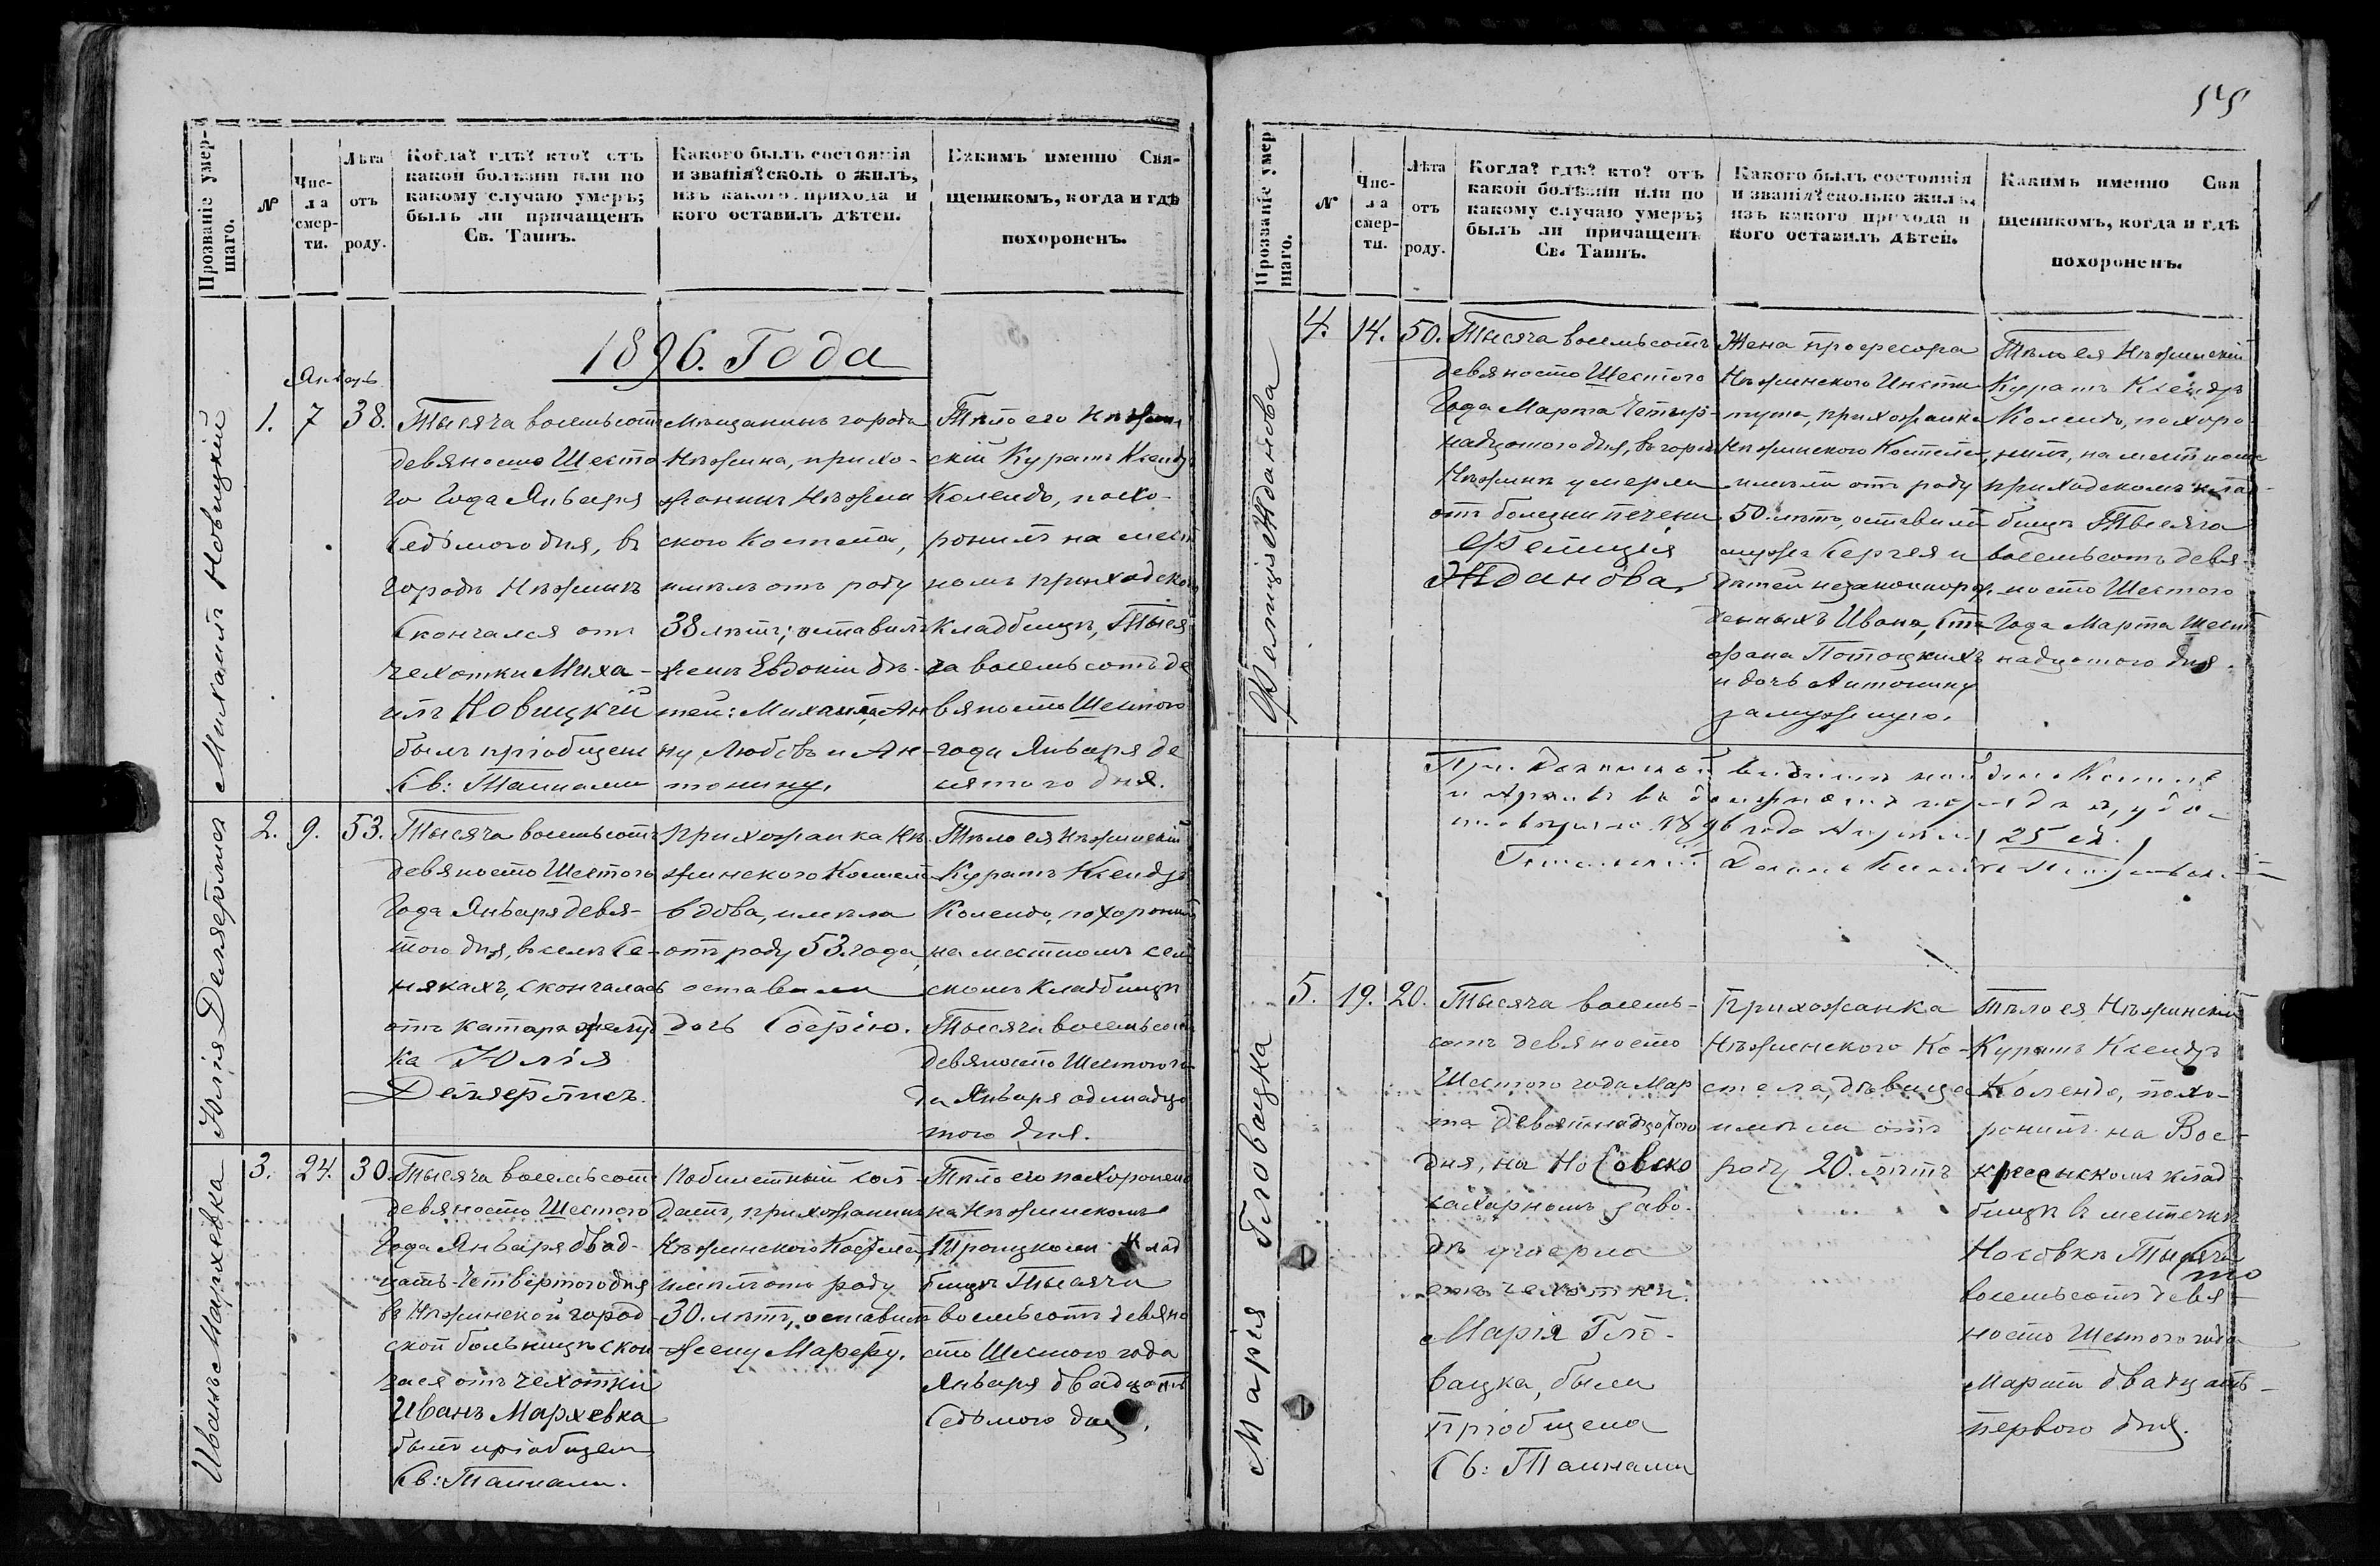 Прозваніе умер-
шаго.
№
Чис-
ла
смер-
ти.
Лѣта
отъ
роду.
Когда? гдѣ? кто? отъ
какой болѣзни или по
какому случаю умеръ;
былъ ли причащенъ
Св. Таинъ.
Какого былъ состоянія
и званія? сколь о жилъ,
изъ какого прихода и
кого оставилъ дѣтей.
Какимъ именно Свя-
щенникомъ, когда и гдѣ
похороненъ.
1896. Года
Январь
Михаилъ Новицкій
1.
7
38.
Тысяча восемьсотъ
девяносто Шесто
го Года Января
Седьмого дня, въ
городѣ Нѣжинѣ
Скончался отъ
чехотки Миха-
илъ Новицкій
былъ пріобщен
Св: Тайнами
Мѣщанинъ города
Нѣжина, прихо-
жанинъ Нѣжин
ского Костела,
имѣлъ отъ роду
38 лѣтъ; оставилъ
жену Евдокію дѣ-
тей: Михаила, Ан
ну, Любовь и Ан-
тонину.
Тѣло его Нѣжин
скій Куратъ Ксендзъ
Колендо, похо-
ронилъ на мест
номъ приходском
Кладбищѣ, Тыся
ча восемьсотъ де
вяносто Шестого
года Января де
вятого дня.
Юлія
2.
9.
53.
Тысяча восемьсотъ
девяносто Шестого
Года Января девя-
того дня, въ селѣ Се-
някахъ, скончалась
отъ катара желуд
ка Юлія
Прихожанка Нѣ
жинского Костела
вдова, имѣла
отъ роду 53 года,
оставила
дочь Софію.
Тѣло ея Нѣжинскій
Куратъ Ксендзъ
Колендо, похоронилъ
на местномъ сель
скомъ Кладбищѣ
Тысяча восемьсотъ
девяносто Шестого го
да Января одинадца
того дня.
Иванъ Мархевка
3.
24.
30.
Тысяча восемьсотъ
девяносто Шестого
Года Января двад-
цать Четвертого дня
въ Нѣжинской город
ской больницѣ скон
чался отъ чехотки
Иванъ Мархевка
былъ пріобщен
Св: Тайнами.
датъ, прихожанинъ
Нѣжинского Костела,
имѣлъ отъ роду
30. лѣтъ, оставилъ
жену Марфу.
Тѣло его похоронено
на Нѣжинскомъ
Троицкомъ Клад
бищѣ Тысяча
восемьсотъ девяно
сто Шестого года
Января двадцать
Седьмого дня.
Прозваніе умер
шаго.
№
Чис-
ла
смер-
ти.
Лѣта
отъ
роду.
Когда? гдѣ? кто? отъ
какой болѣзни или по
какому случаю умеръ;
былъ ли причащенъ
Св. Таинъ.
Какого былъ состоянія
и званія? сколько жилъ,
изъ какого прихода и
кого оставилъ дѣтей.
Какимъ именно Свя
щенникомъ, когда и гдѣ
похороненъ.
Фелиція Жданова
4.
14.
50.
Тысяча восемьсотъ
девяносто Шестого
Года Марта Четыр-
надцатого дня, въ городѣ
Нѣжинѣ умерла
отъ болезни печени
Фелиція
Жданова,
Жена професора
Нѣжинского Инсти
тута, прихожанка
Нѣжинского Костела,
имѣла отъ роду
50. лѣтъ, оставила
мужа Сергея и
дѣтей незаконнорож
денныхъ Ивана, Сте
фана Потоцкихъ
и дочь Антонину
замужную.
Тѣло ея Нѣжинскій
Куратъ Ксендзъ
Колендо, похоро
нилъ, на местномъ
приходскомъ клад
бищѣ Тысяча
восемьсотъ девя-
носто Шестого
Года Марта Шест
надцатого дня.
1896 года 25 дня.
Марія Гловацка
5.
19.
20.
Тысяча восемь-
сотъ девяносто
Шестого года Мар
та Девятнадцатого
дня, на Носовско
сахарномъ заво-
дѣ умерла
отъ чехотки
Марія Гло-
вацка, была
пріобщена
Св: Тайнами
Прихожанка
Нѣжинского Ко-
стела, дѣвица
имѣла отъ
роду 20. лѣтъ
Тѣло ея Нѣжинскій
Куратъ Ксендзъ
Колендо, похо-
ронилъ на Вос-
кресенскомъ клад-
бищѣ въ местечкѣ
Носовкѣ Тысяча
восемьсотъ девя-
носто Шестого года
Марта двадцать-
первого дня.